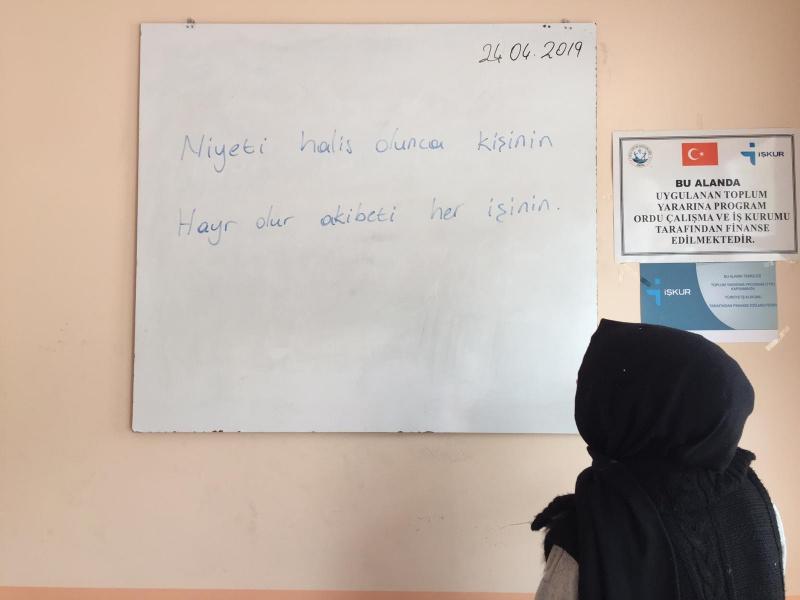 24.04.2019
Niyeti halis olunca kişinin
Hayr olur akibeti her işinin.
İŞKUR
BU ALANDA
UYGULANAN TOPLUM
YARARINA PROGRAM
ORDU ÇALIŞMA VE İŞ KURUMU
TARAFINDAN FİNANSE
EDİLMEKTEDİR.
İŞKUR
BU ALANIN TEMİZLİĞİ
TOPLUM YARARINA PROGRAM (TYP)
KAPSAMINDA
TÜRKİYE İŞ KURUMU
TARAFINDAN FİNANSE EDİLMEKTEDİR